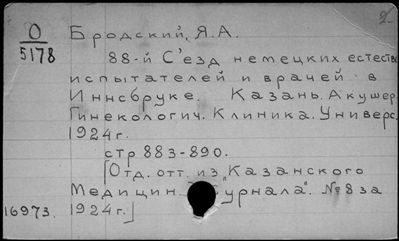 2.
О
5178
Бродский, Я.А.
88-й С'езд немецких естество
испытателей и врачей в
Иннсбруке. Казань. Акушер.
Гинекологич. Клиника. Универс.
1924г.
стр 883-890.
[Отд. отт. из „Казанского
Медицин. урнала". №8 за
16973. 1924г.]